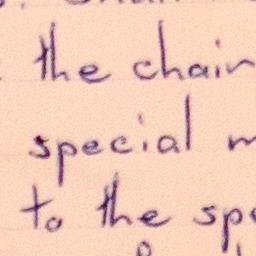 the chain
special m
to the spe